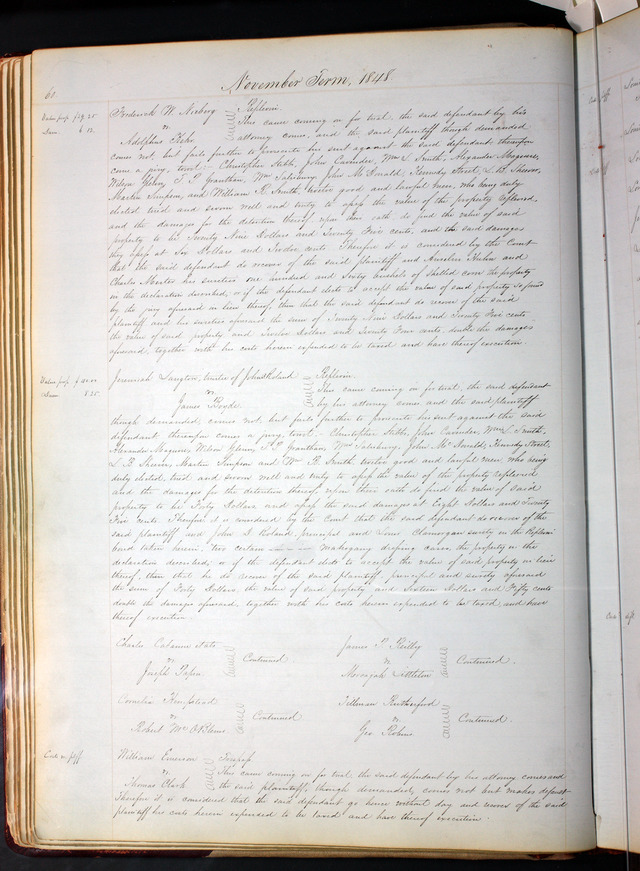 November Term, 1848
Value prop. $29.25
Dam. 6.12
Frederick W. Nieberg
vs
Adolphus
Replevin.
This cause coming on for trial, the said defendant by his
attorney comes, and the said plaintiff though demanded
comes not, but fails further to prosecute his suit against the said defendant, therefore
come a jury, towit: Christopher Stibbs, John Cavender, Wm S. Smith, Alexander Maguire,
Wilson Glenn, T. P. Grantham, Wm Salisbury, John McDonald, Kennedy Street, L. B. Shaver,
Martin Simpson, and William R. Smith, twelve good and lawful men, who being duly
elected tried and sworn well and truly to assess the value of the property replevied,
and the damages for the detention thereof upon their oath do find the value of said
property to be Twenty Nine Dollars and Twenty Five cents, and the said damages
they assess at Six Dollars and Twelve cents. Therefore it is considered by the Court
that the said defendant do recover of the said plaintiff and Aurelius and
Charles his sureties one hundred and Sixty bushels of shelled corn the property
in the declaration described, or if the defendant elects to accept the value of said property so found
by the jury aforesaid in lieu thereof, then that the said defendant do recover of the said
plaintiff and his sureties aforesaid the sum of Twenty Nine Dollars and Twenty Five cents
the value of said property and Twelve Dollars and Twenty Four cents, double the damages
aforesaid, together with his costs herein expended to be taxed and have thereof execution.
Value prop. $40.00
Dam 8.25
Jeremiah Langton, trustee of John Roland
vs
James Goode
Replevin.
This cause coming on for trial, the said defendant
by his attorney comes and the said plaintiff
though demanded, comes not, but fails further to prosecute his suit against the said
defendant, thereupon comes a jury, towit: Christopher Stibbs, John Cavender, Wm S. Smith,
Alexander Maguire, Wilson Glenn, T. P. Grantham, Wm Salisbury, John McDonald, Kennedy Street,
L. B. Shaver, Martin Simpson and Wm R. Smith twelve good and lawful men, who being
duly elected, tried and sworn well and truly to assess the value of the property replevied
and the damages for the detention thereof, upon their oath do find the value of said
property to be Forty Dollars, and assess the said damages at Eight Dollars and Twenty
Five cents. Therefore it is considered by the Court that the said defendant do recover of the
said plaintiff and John J. Roland, principal and Louis Clamorgan surety in the Replevin
bond taken herein, two certain Mahogany cases, the property in the
declaration described, or if the defendant elects to accept the value of said property in lieu
thereof, then that he do recover of the said plaintiff, principal and surety aforesaid
the sum of Forty Dollars, the value of said property and Sixteen Dollars and Fifty cents
double the damages aforesaid, together with his costs herein expended to be taxed, and have
thereof execution.
Charles
vs
Joseph Papin
Continued
James P. Reilly
vs
Littleton
Continued.
Cornelia Hempstead
vs
Robert
Continued
Tillman Rutherford
vs
Geo.
Continued.
William Emerson
vs
Thomas Clark
This cause coming on for trial the said defendant by his attorney comes and
the said plaintiff, though demanded, comes not but makes default
Therefore it is considered that the said defendant go hence without day and recover of the said
plaintiff his costs herein expended to be taxed and have thereof execution.